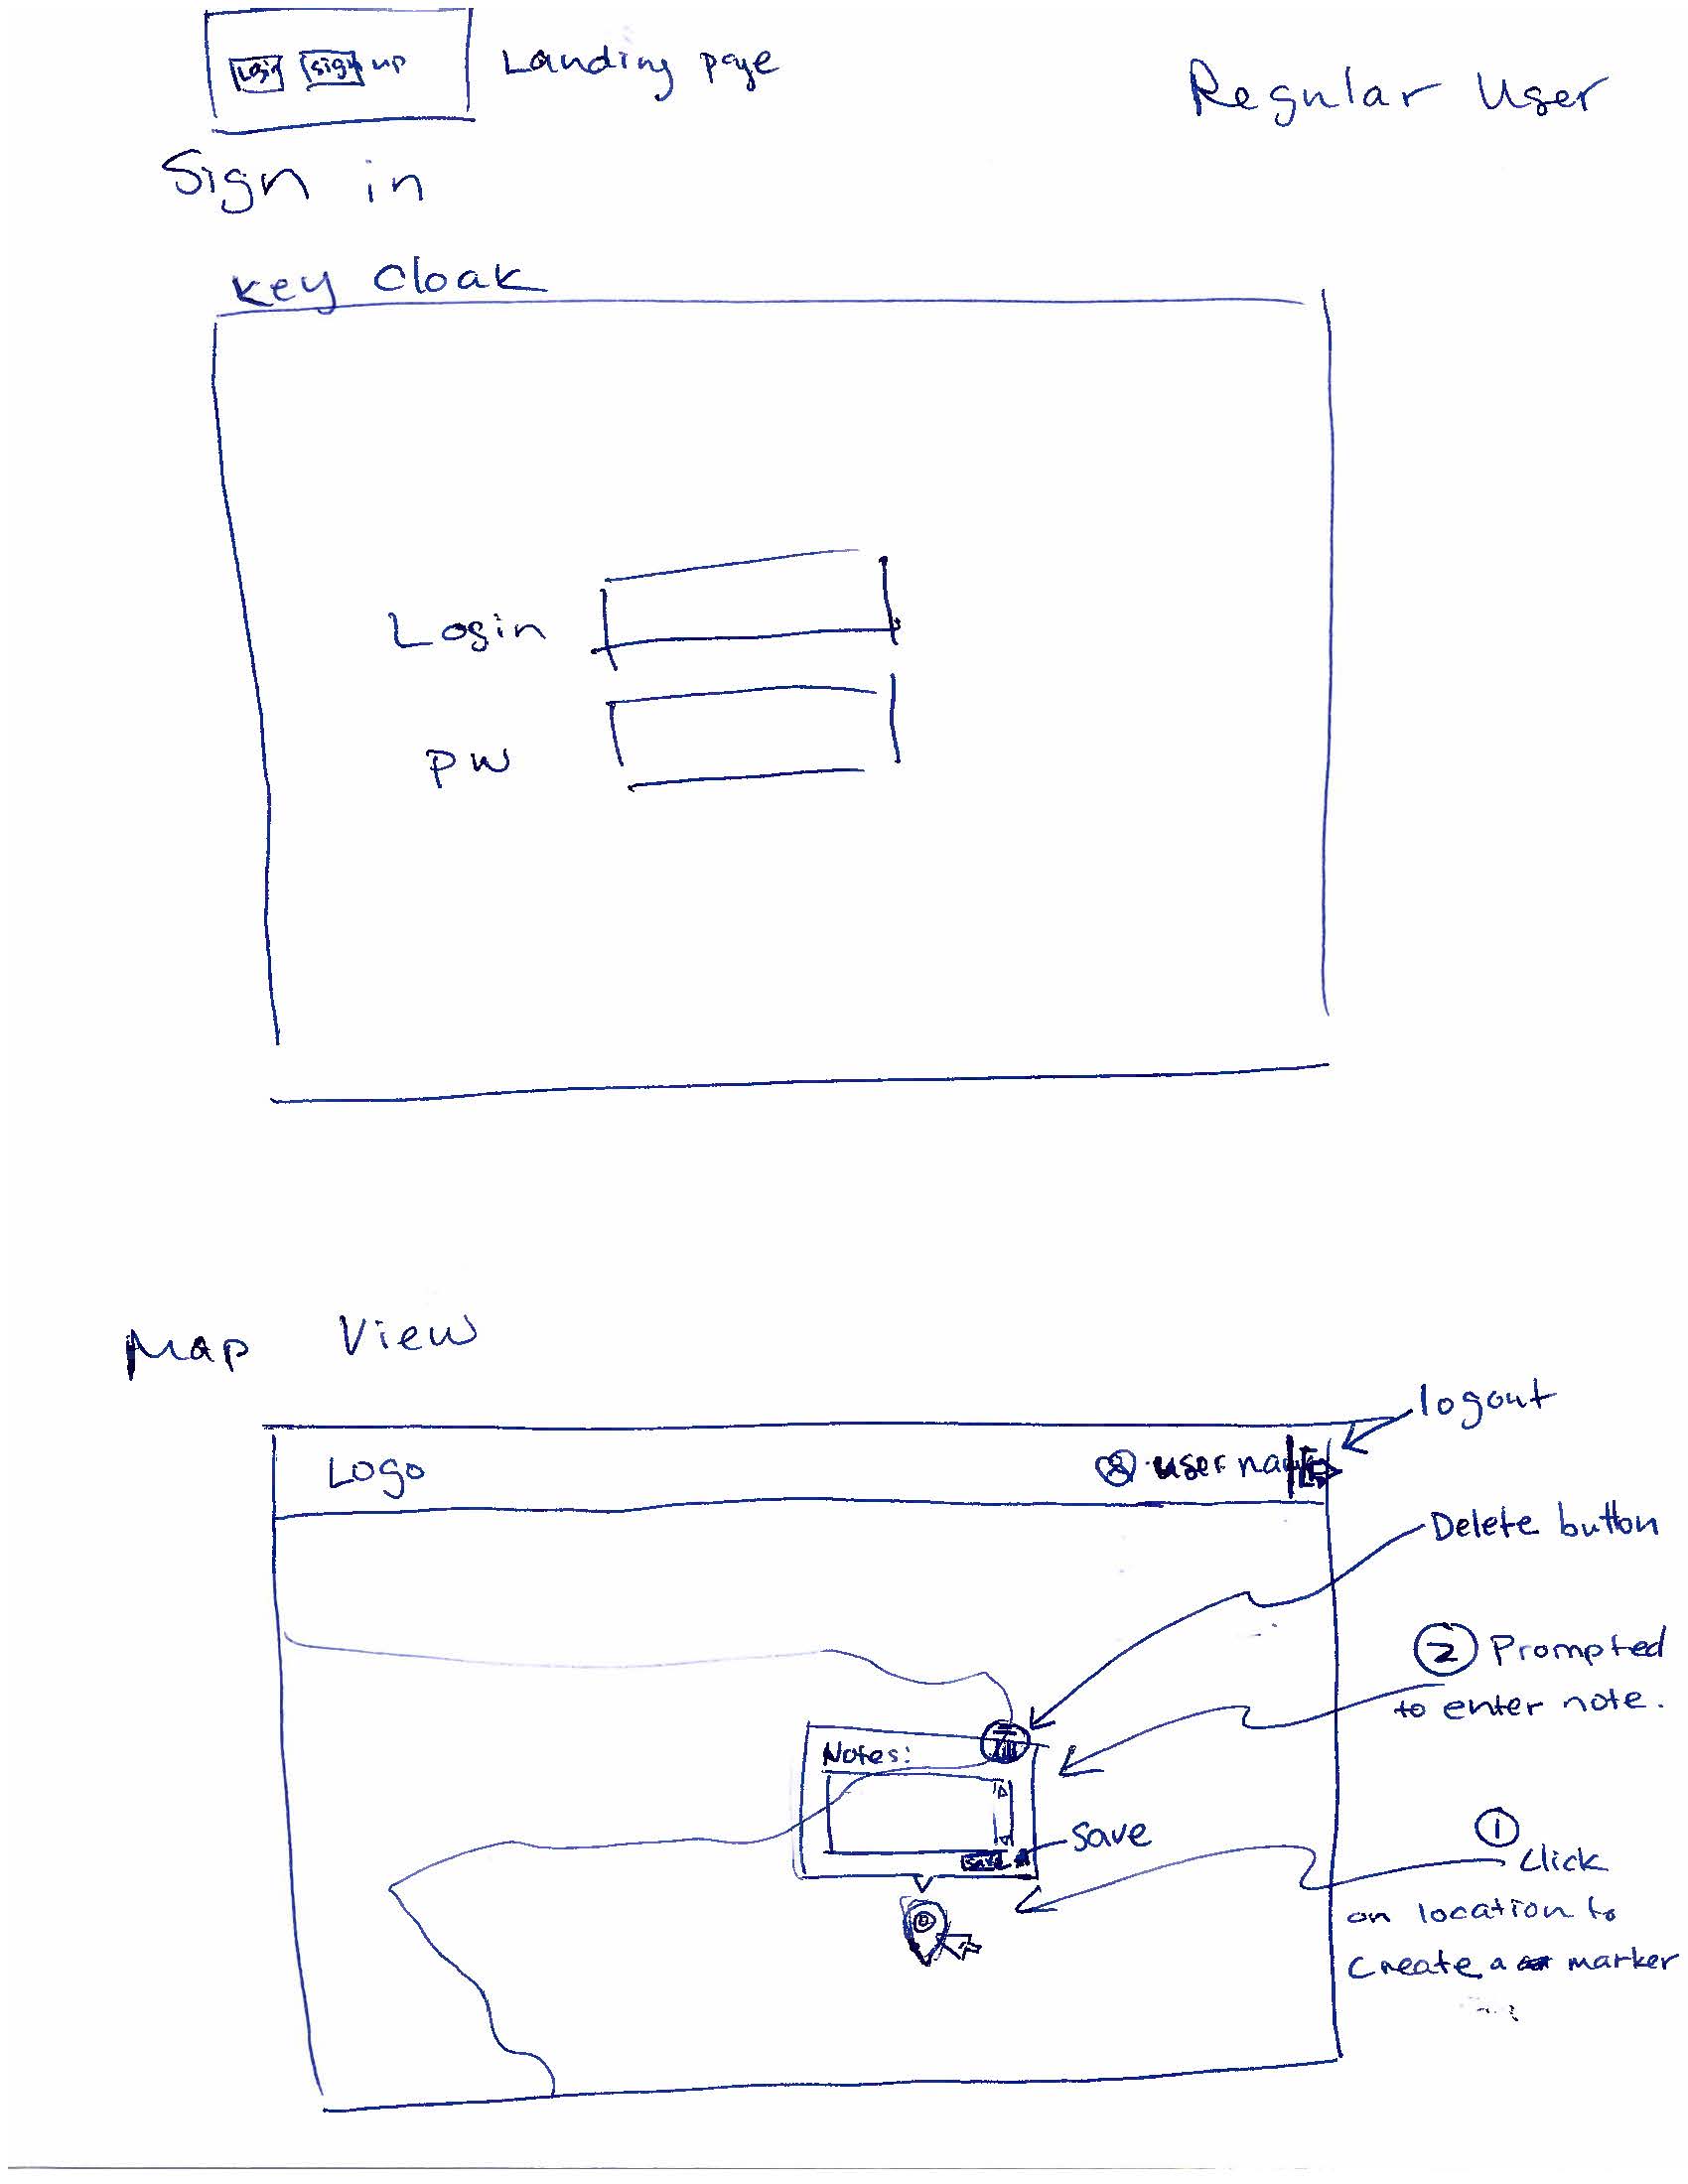 Login Sign up Landing page
Regular User
Sign in
Key Cloak
Login
PW
Map View
logout
Logo
user name
Delete button
2 Prompted
to enter note.
Notes:
Save
save
1
Click
on location to
Create a marker